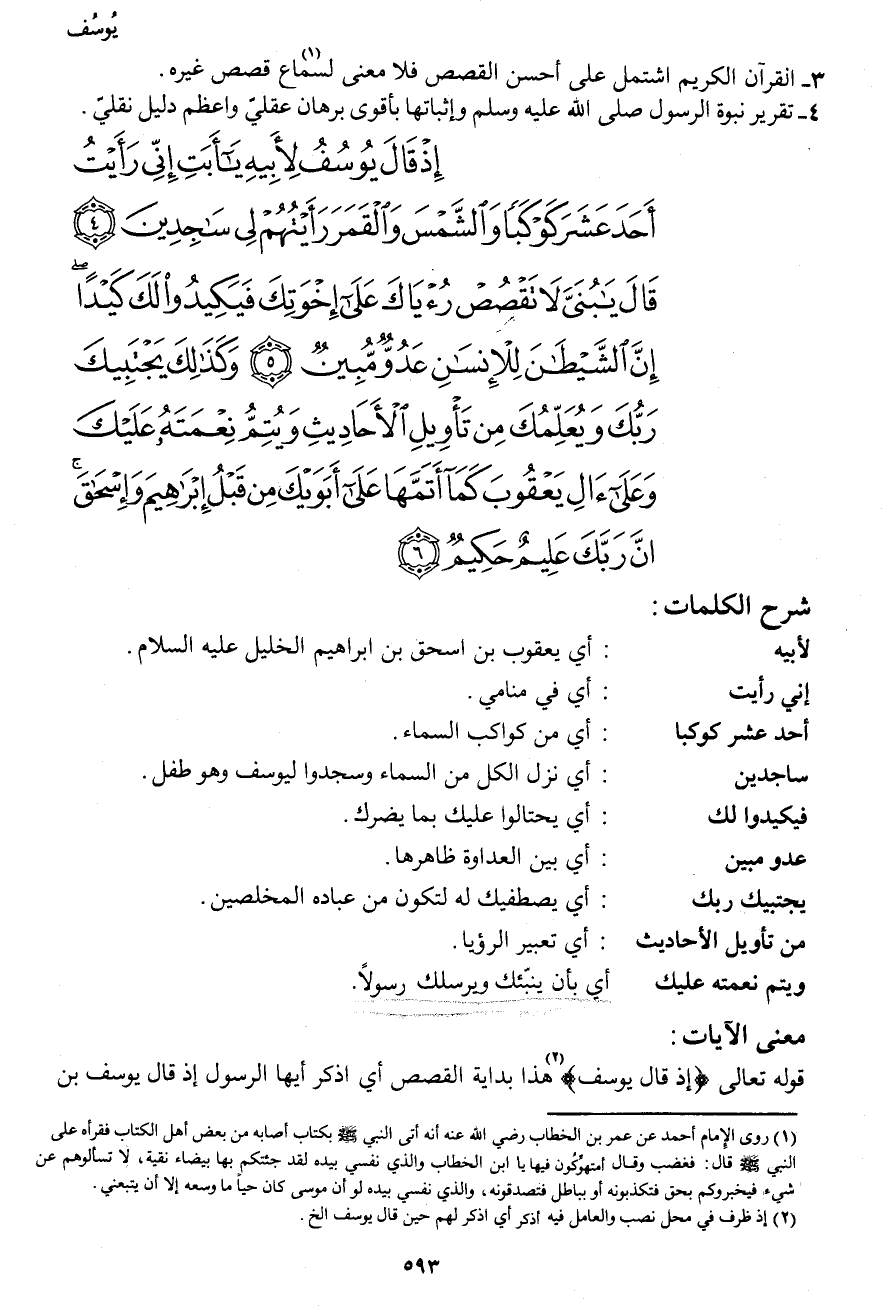 يُوسُف
٣ـ القرآن الكريم اشتمل على أحسن القصص فلا معنى لسماع(١) قصص غيره.
٤ـ تقرير نبوة الرسول صلى الله عليه وسلم وإثباتها بأقوى برهان عقليّ واعظم دليل نقليّ.
إِذْ قَالَ يُوسُفُ لِأَبِيهِ يَٰٓأَبَتِ إِنِّى رَأَيْتُ
أَحَدَ عَشَرَ كَوْكَبًا وَٱلشَّمْسَ وَٱلْقَمَرَ رَأَيْتُهُمْ لِى سَٰجِدِينَ ﴿٤﴾
قَالَ يَٰبُنَىَّ لَا تَقْصُصْ رُءْيَاكَ عَلَىٰٓ إِخْوَتِكَ فَيَكِيدُوا۟ لَكَ كَيْدًا ۖ
إِنَّ ٱلشَّيْطَٰنَ لِلْإِنسَٰنِ عَدُوٌّ مُّبِينٌ ﴿٥﴾ وَكَذَٰلِكَ يَجْتَبِيكَ
رَبُّكَ وَيُعَلِّمُكَ مِن تَأْوِيلِ ٱلْأَحَادِيثِ وَيُتِمُّ نِعْمَتَهُۥ عَلَيْكَ
وَعَلَىٰٓ ءَالِ يَعْقُوبَ كَمَآ أَتَمَّهَا عَلَىٰٓ أَبَوَيْكَ مِن قَبْلُ إِبْرَٰهِيمَ وَإِسْحَٰقَ ۚ
انَّ رَبَّكَ عَلِيمٌ حَكِيمٌ ﴿٦﴾
شرح الكلمات:
لأبيه : أي يعقوب بن اسحق بن ابراهيم الخليل عليه السلام.
إني رأيت : أي في منامي.
أحد عشر كوكبا : أي من كواكب السماء.
ساجدين : أي نزل الكل من السماء وسجدوا ليوسف وهو طفل.
فيكيدوا لك : أي يحتالوا عليك بما يضرك.
عدو مبين : أي بين العداوة ظاهرها.
يجتبيك ربك : أي يصطفيك له لتكون من عباده المخلصين.
من تأويل الأحاديث : أي تعبير الرؤيا.
ويتم نعمته عليك أي بأن ينبّئك ويرسلك رسولاً.
معنى الآيات:
قوله تعالى ﴿إذ قال يوسف﴾(٢) هذا بداية القصص أي اذكر أيها الرسول إذ قال يوسف بن
(١) روى الإمام أحمد عن عمر بن الخطاب رضي الله عنه أنه أتى النبي ﷺ بكتاب أصابه من بعض أهل الكتاب فقرأه على
النبي ﷺ قال: فغضب وقال أمتهوِّكون فيها يا ابن الخطاب والذي نفسي بيده لقد جئتكم بها بيضاء نقية، لا تسألوهم عن
شيء فيخبروكم بحق فتكذبونه أو بباطل فتصدقونه، والذي نفسي بيده لو أن موسى كان حياً ما وسعه إلا أن يتبعني.
(٢) إذ ظرف في محل نصب والعامل فيه اذكر أي اذكر لهم حين قال يوسف الخ.
٥٩٣